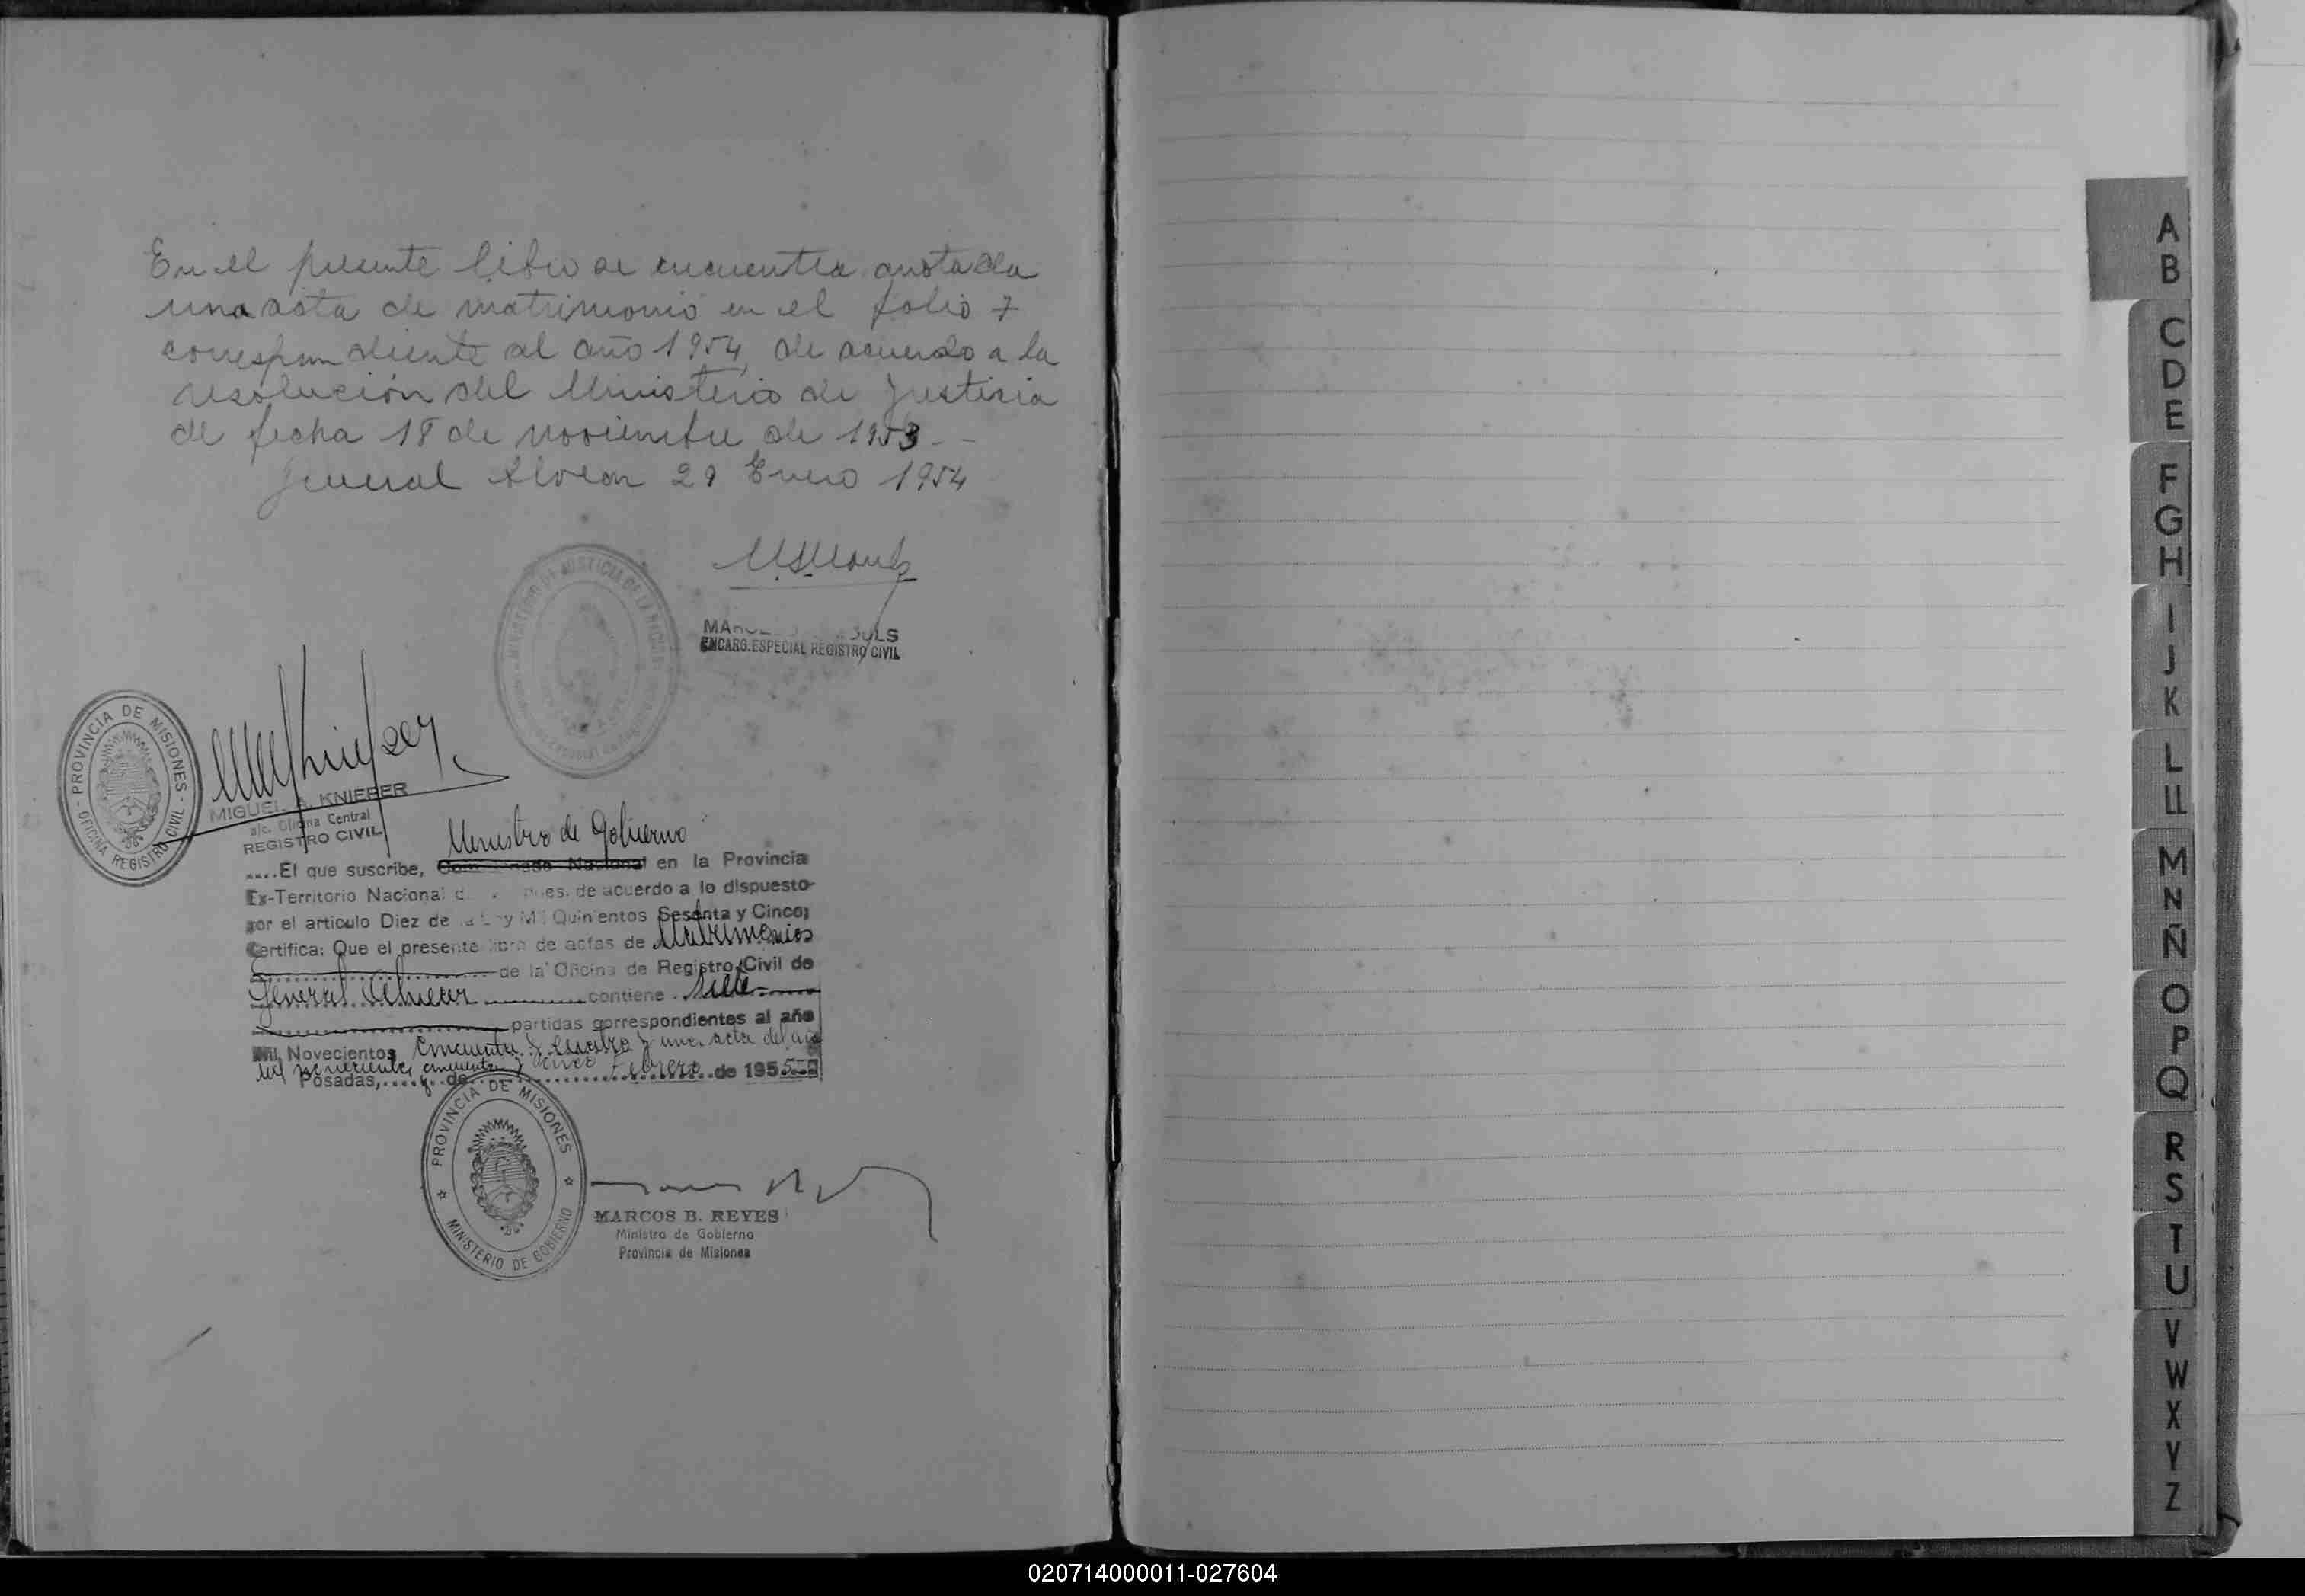 En el presente libro se encuentra anotada
una acta de matrimonio en el folio 7
correspondiente al año 1954, de acuerdo a la
resolución del Ministerio de Justicia
de fecha 18 de noviembre de 1953 - -
General Alvear 29 Enero 1954
ENCARG. ESPECIAL REGISTRO CIVIL
MINISTERIO DE JUSTICIA DE LA NACION
PROVINCIA DE MISIONES
OFICINA REGISTRO CIVIL
MIGUEL A. KNIEPER
a/c. Oficina Central
REGISTRO CIVIL
Ministro de Gobierno
....El que suscribe, Nacional en la Provincia
Ex-Territorio Nacional de acuerdo a lo dispuesto
por el articulo Diez de Quinientos Sesenta y Cinco;
Certifica: Que el presente libro de actas de Matrimonios
de la Oficina de Registro Civil de
General Alvear contiene siete
partidas correspondientes al año
Mil Novecientos cincuenta y cuatro y una acta del año
mil novecientos cincuenta y cinco
Posadas, de Febrero de 1955
PROVINCIA DE MISIONES
MINISTERIO DE GOBIERNO
MARCOS B. REYES
Ministro de Gobierno
Provincia de Misiones
A
B
C
D
E
F
G
H
I
J
K
L
LL
M
N
Ñ
O
P
Q
R
S
T
U
V
W
X
Y
Z
020714000011-027604